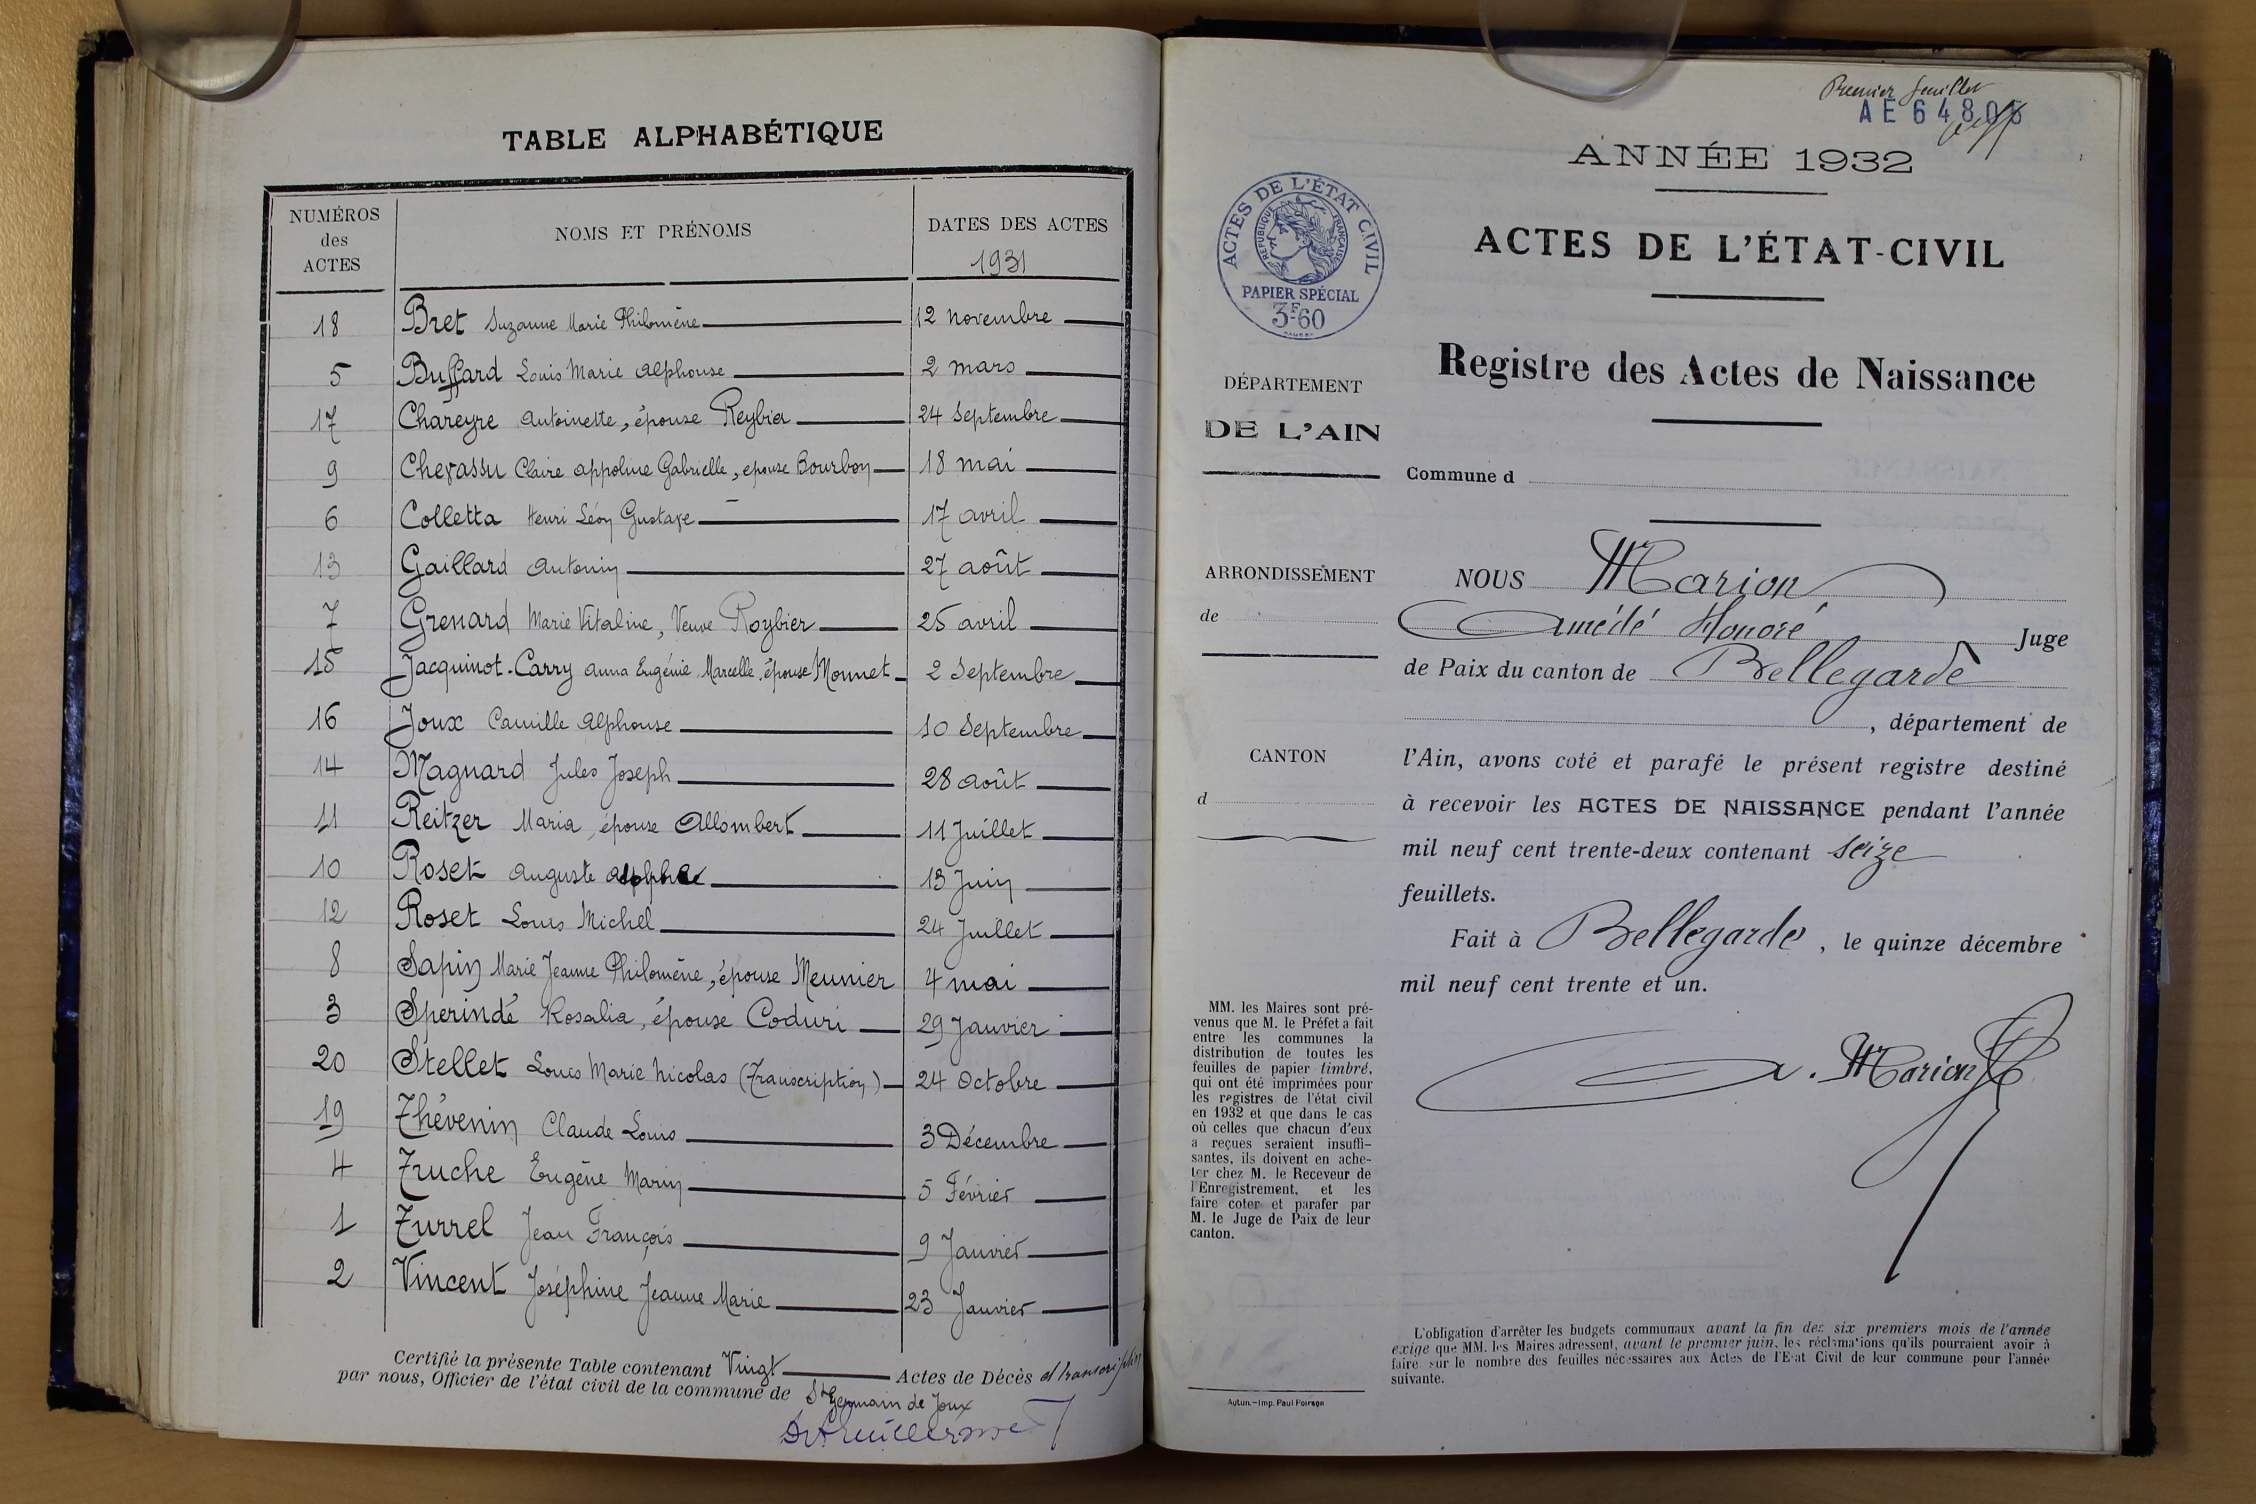 TABLE ALPHABÉTIQUE
NUMÉROS des ACTES NOMS ET PRÉNOMS DATES DES ACTES 1931
18 Bret Suzanne Marie Philomène 12 novembre
5 Buffard Louis Marie Alphonse 2 mars
17 Chareyre Antoinette, épouse Reybier 24 Septembre
9 Chevassu Claire Appoline Gabrielle, épouse Bourbon 18 mai
6 Colletta Henri Léon Gustave 17 avril
13 Gaillard Antonin 27 août
7 Grenard Marie Vitaline, Veuve Roybier 25 avril
15 Jacquinot-Carry Anna Eugénie Marcelle, épouse Monnet 2 Septembre
16 Joux Camille Alphonse 10 Septembre
14 Magnard Jules Joseph 28 août
11 Reitzer Maria, épouse Allombert 11 Juillet
10 Roset Auguste 13 Juin
12 Roset Louis Michel 24 Juillet
8 Sapin Marie Jeanne Philomène, épouse Meunier 4 mai
3 Sperindé Rosalia, épouse Coduri 29 Janvier
20 Stellet Louis Marie Nicolas (Transcription) 24 Octobre
19 Thévenin Claude Louis 3 Décembre
4 Truche Eugène Marin 5 Février
1 Turrel Jean François 9 Janvier
2 Vincent Joséphine Jeanne Marie 23 Janvier
Certifié la présente Table contenant Vingt Actes de Décès et transcription
par nous, Officier de l'état civil de la commune de St Germain de Joux
Premier feuillet
AE 64805
ANNÉE 1932
ACTES DE L'ÉTAT CIVIL
RÉPUBLIQUE FRANÇAISE
PAPIER SPÉCIAL
3F-60
ACTES DE L'ÉTAT-CIVIL
Registre des Actes de Naissance
DÉPARTEMENT
DE L'AIN
Commune d
ARRONDISSEMENT
de
CANTON
d
NOUS Marion
Amédé Honoré Juge
de Paix du canton de Bellegarde
, département de
l'Ain, avons coté et parafé le présent registre destiné
à recevoir les ACTES DE NAISSANCE pendant l'année
mil neuf cent trente-deux contenant seize
feuillets.
Fait à Bellegarde, le quinze décembre
mil neuf cent trente et un.
A. Marion
MM. les Maires sont pré-
venus que M. le Préfet a fait
entre les communes la
distribution de toutes les
feuilles de papier timbré,
qui ont été imprimées pour
les registres de l'état civil
en 1932 et que dans le cas
où celles que chacun d'eux
a reçues seraient insuffi-
santes, ils doivent en ache-
ter chez M. le Receveur de
l'Enregistrement, et les
faire coter et parafer par
M. le Juge de Paix de leur
canton.
Autun.-Imp. Paul Poirson
L'obligation d'arrêter les budgets communaux avant la fin des six premiers mois de l'année
exige que MM. les Maires adressent, avant le premier juin, les réclamations qu'ils pourraient avoir à
faire sur le nombre des feuilles nécessaires aux Actes de l'Etat Civil de leur commune pour l'année
suivante.